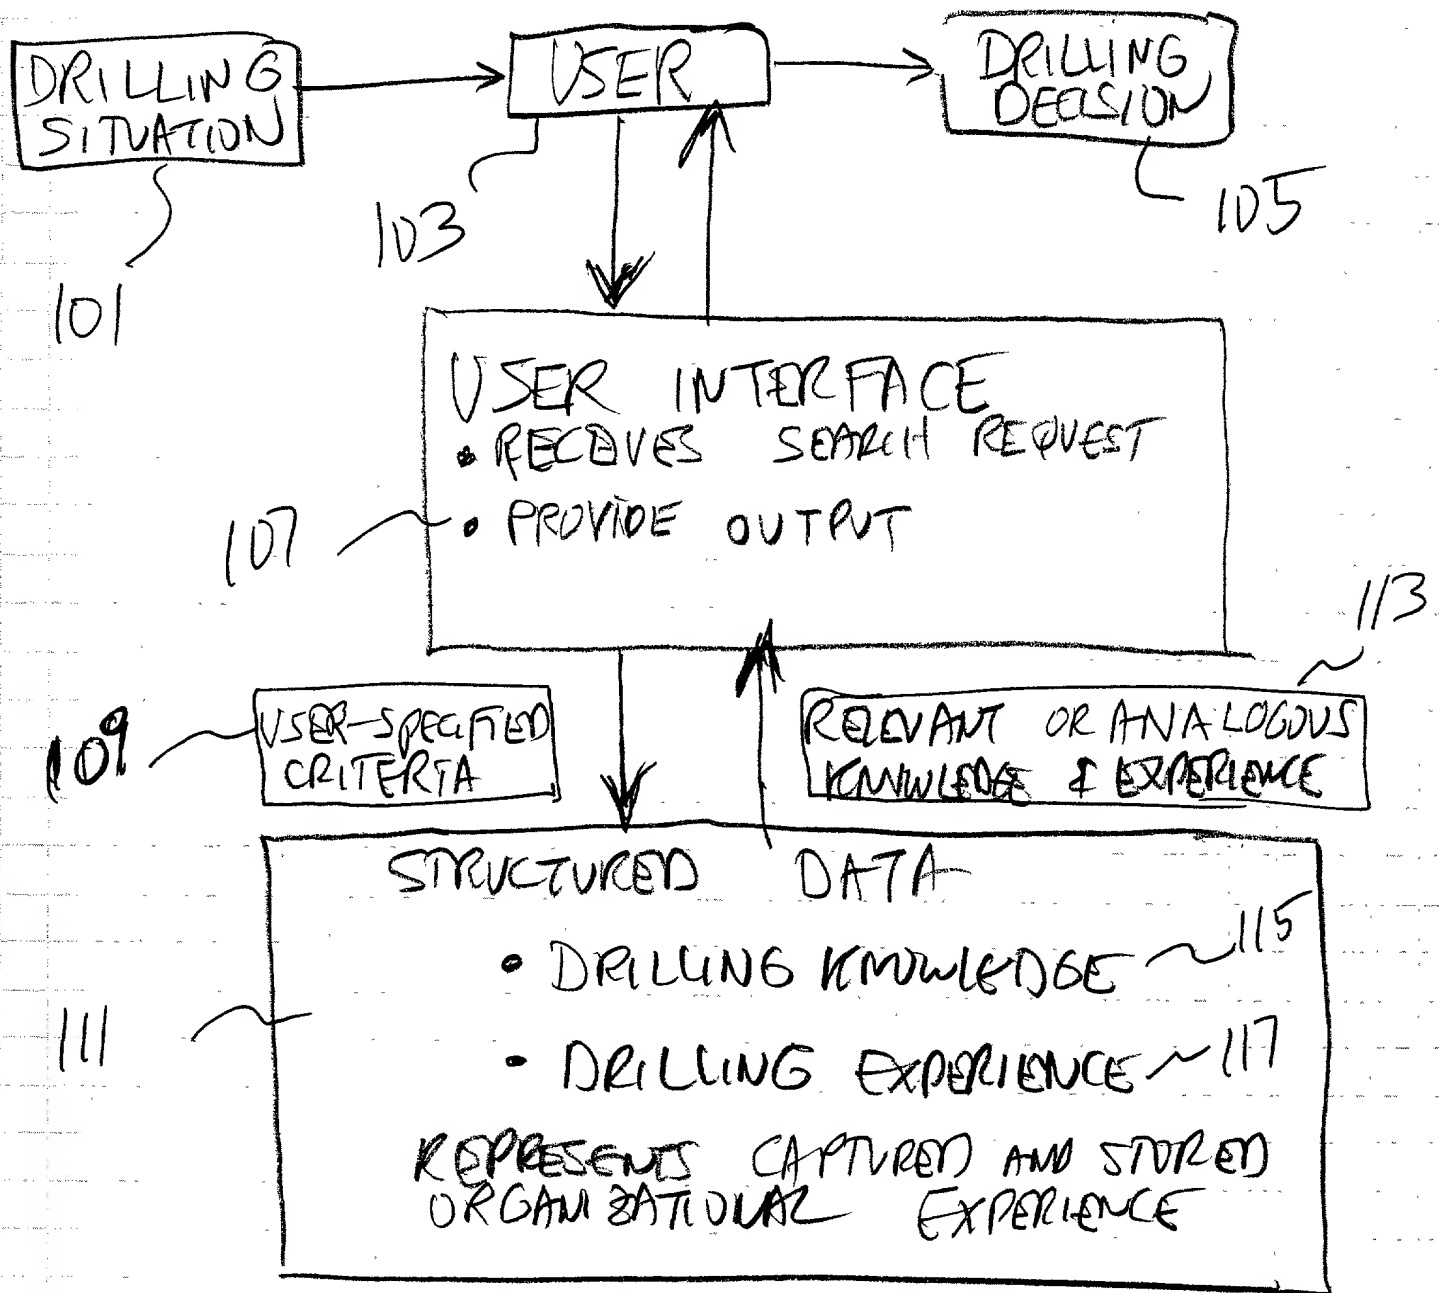 DRILLING
SITUATION
USER
DRILLING
DECISION
101
103
105
USER INTERFACE
• RECEIVES SEARCH REQUEST
• PROVIDE OUTPUT
107
113
109
USER-SPECIFIED
CRITERIA
RELEVANT OR ANALOGOUS
KNOWLEDGE & EXPERIENCE
STRUCTURED DATA
• DRILLING KNOWLEDGE
115
111
• DRILLING EXPERIENCE
117
REPRESENTS CAPTURED AND STORED
ORGANIZATIONAL EXPERIENCE